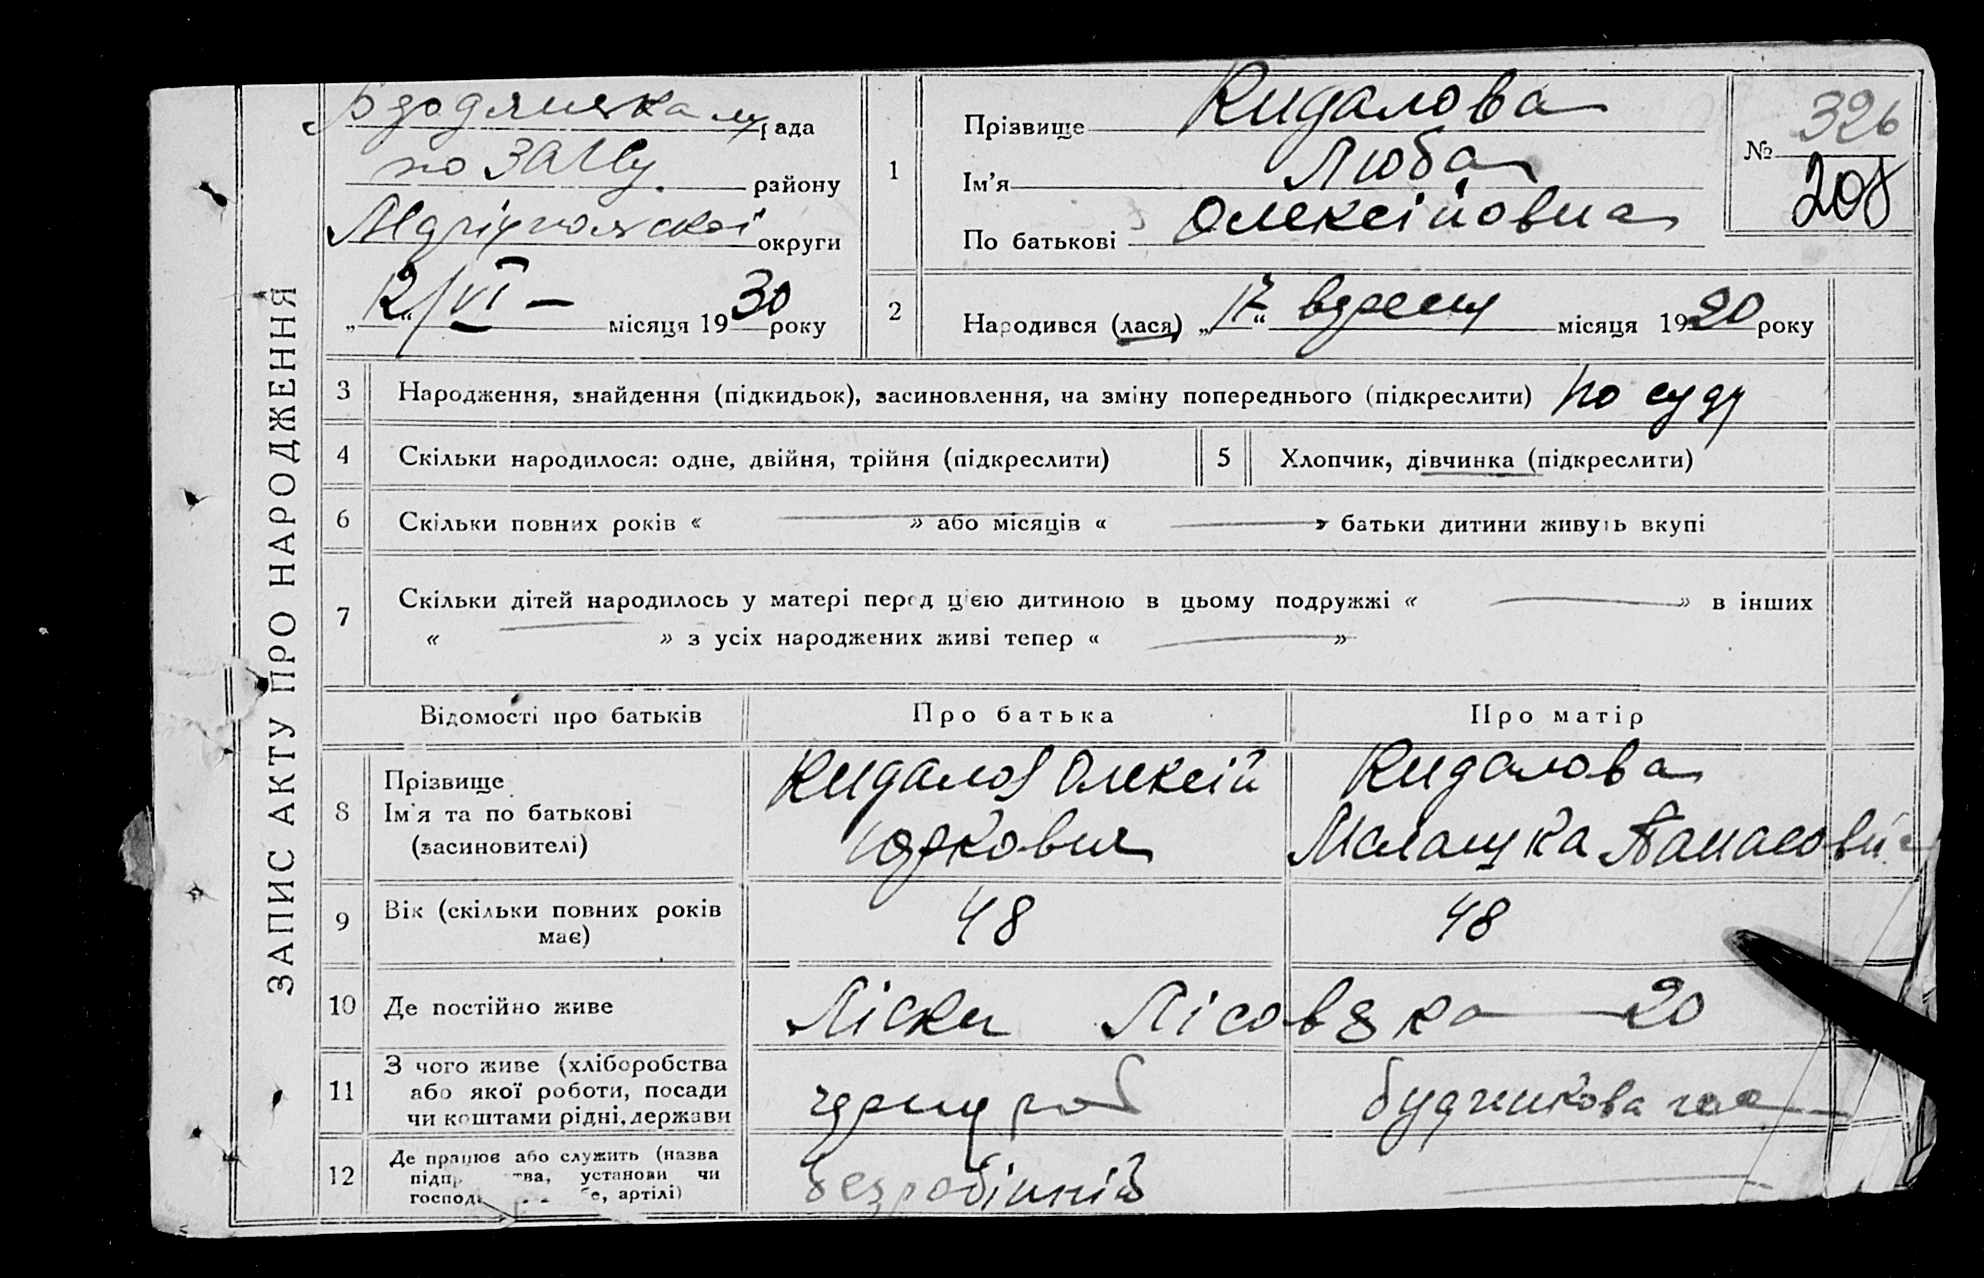 ЗАПИС АКТУ ПРО НАРОДЖЕННЯ
Бердянська м/рада
по ЗАГСу району
Маріупольської округи
„12“/VI – місяця 1930 року
1
Прізвище Кидалова
Ім'я Люба
По батькові Олексійовна
№ 326
208
2
Народився (лася) „17“ вересня місяця 1920 року
3 Народження, знайдення (підкидьок), засиновлення, на зміну попереднього (підкреслити) по суду
4 Скільки народилося: одне, двійня, трійня (підкреслити)
5 Хлопчик, дівчинка (підкреслити)
6 Скільки повних років « — » або місяців « — » батьки дитини живуть вкупі
7 Скільки дітей народилось у матері перед цією дитиною в цьому подружжі « — » в інших
« — » з усіх народжених живі тепер « — »
Відомості про батьків Про батька Про матір
8 Прізвище
Ім'я та по батькові
(засиновителі)
Кидалов Олексій
Кидалова
Малашка Панасовна
9 Вік (скільки повних років
має)
48 48
10 Де постійно живе Ліски Лісовська — 20
11 З чого живе (хліборобства
або якої роботи, посади
чи коштами рідні, держави
черн роб
12 Де працює або служить (назва
установи чи
артілі)
безробітній —